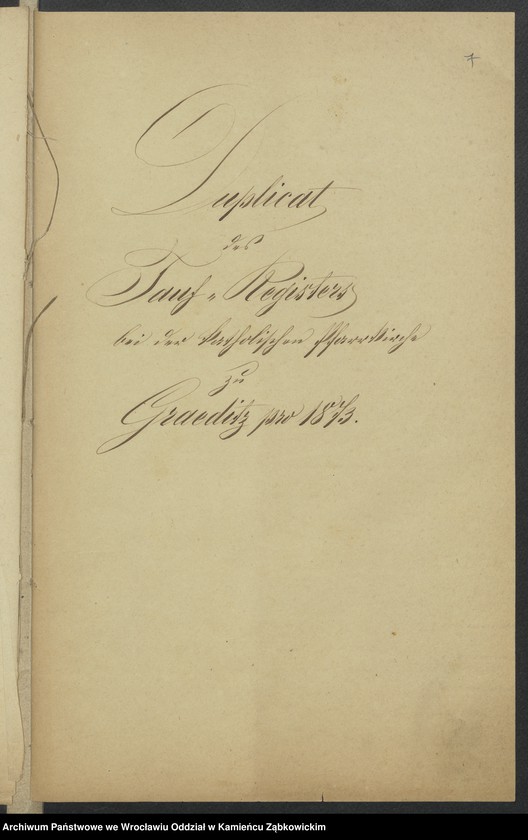 7
Duplicat
des
Tauf-Registers
bei der katholischen Pfarrkirche
zu
Graeditz pro 1873.
Archiwum Państwowe we Wrocławiu Oddział w Kamieńcu Ząbkowickim